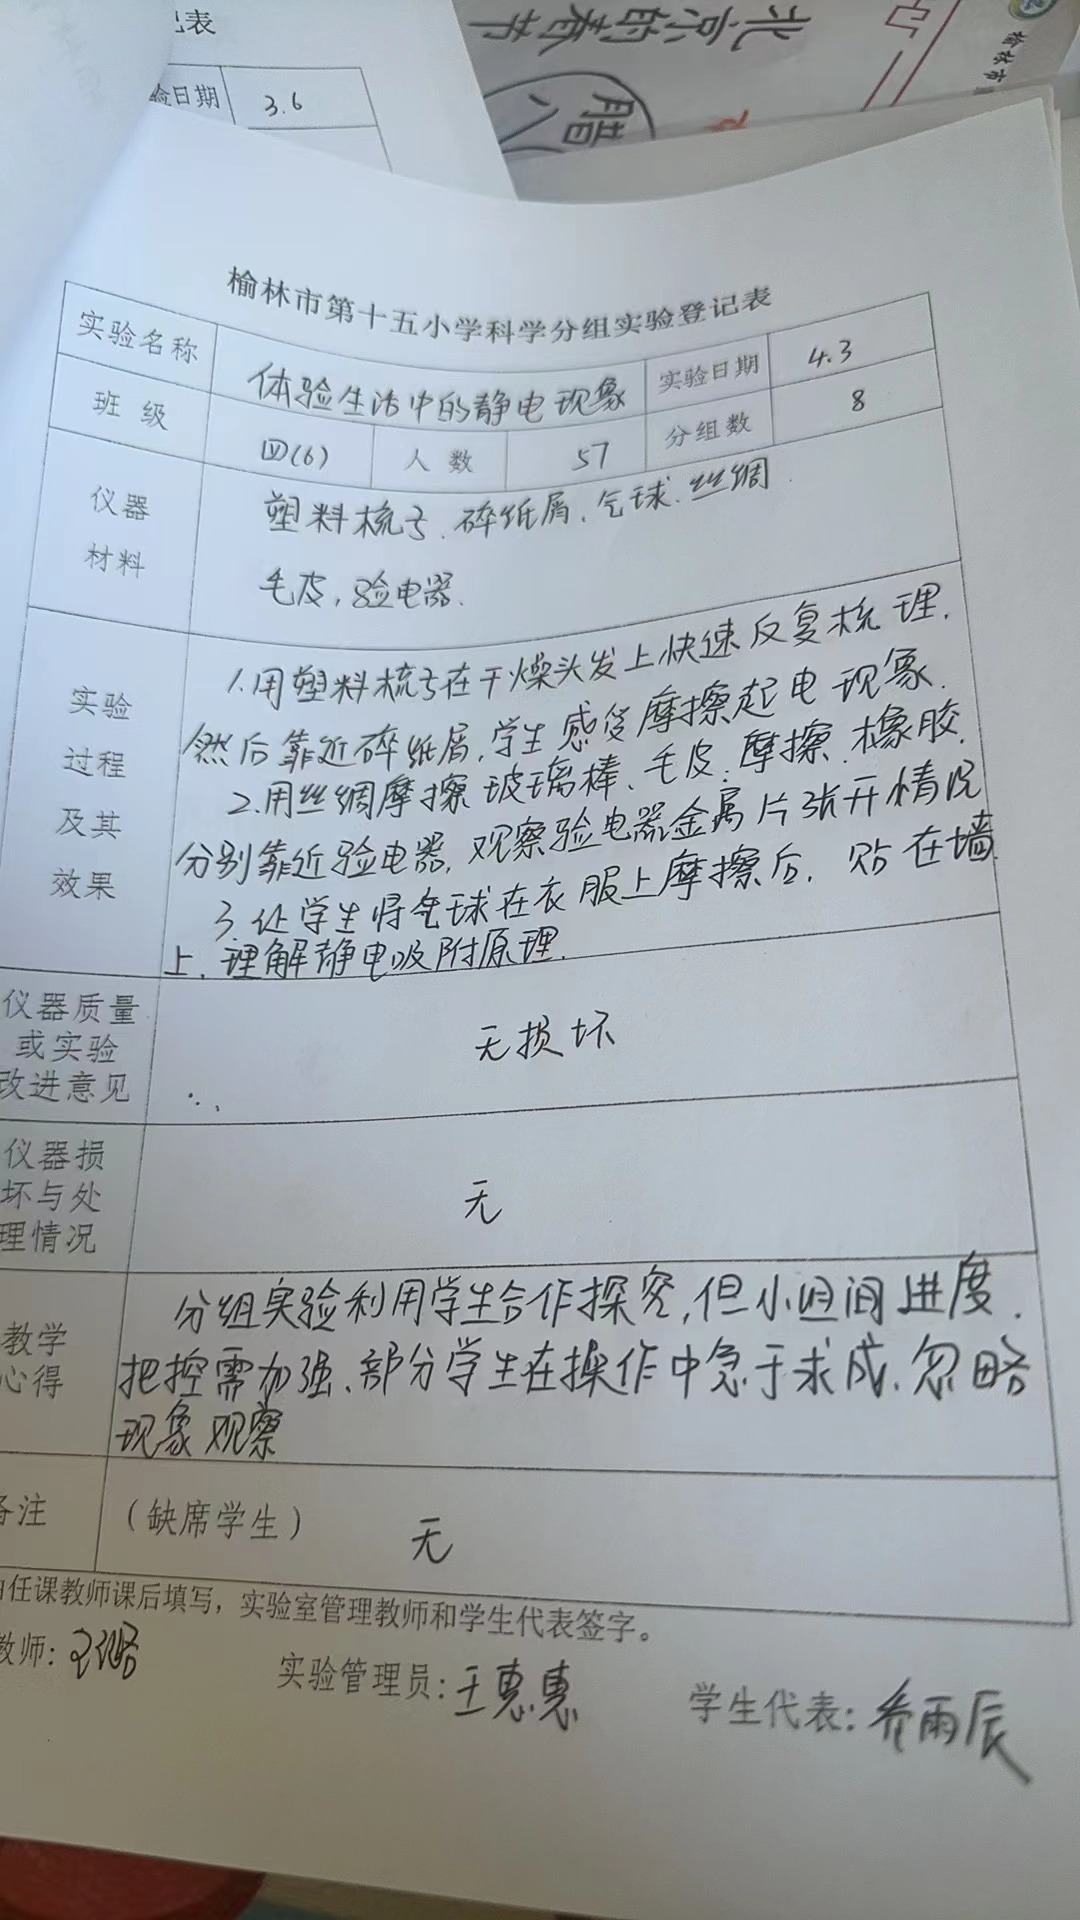 记表
验日期 3.6
北京的春节
腊八
榆林市
榆林市第十五小学科学分组实验登记表
实验名称 体验生活中的静电现象 实验日期 4.3
班级 四(6) 人数 57 分组数 8
仪器 塑料梳子、碎纸屑、气球、丝绸
材料 毛皮，验电器.
1.用塑料梳子在干燥头发上快速反复梳理.
实验
然后靠近碎纸屑,学生感受摩擦起电现象.
过程
2.用丝绸摩擦玻璃棒、毛皮.摩擦橡胶.
及其
分别靠近验电器,观察验电器金属片张开情况
效果
3.让学生将气球在衣服上摩擦后,贴在墙
上.理解静电吸附原理.
仪器质量
或实验 无损坏
改进意见
仪器损
坏与处 无
理情况
分组实验利用学生合作探究,但小组间进度.
教学
心得 把控需加强、部分学生在操作中急于求成、忽略
现象观察
备注 （缺席学生） 无
由任课教师课后填写，实验室管理教师和学生代表签字。
教师: 实验管理员:王惠惠 学生代表:乔雨辰